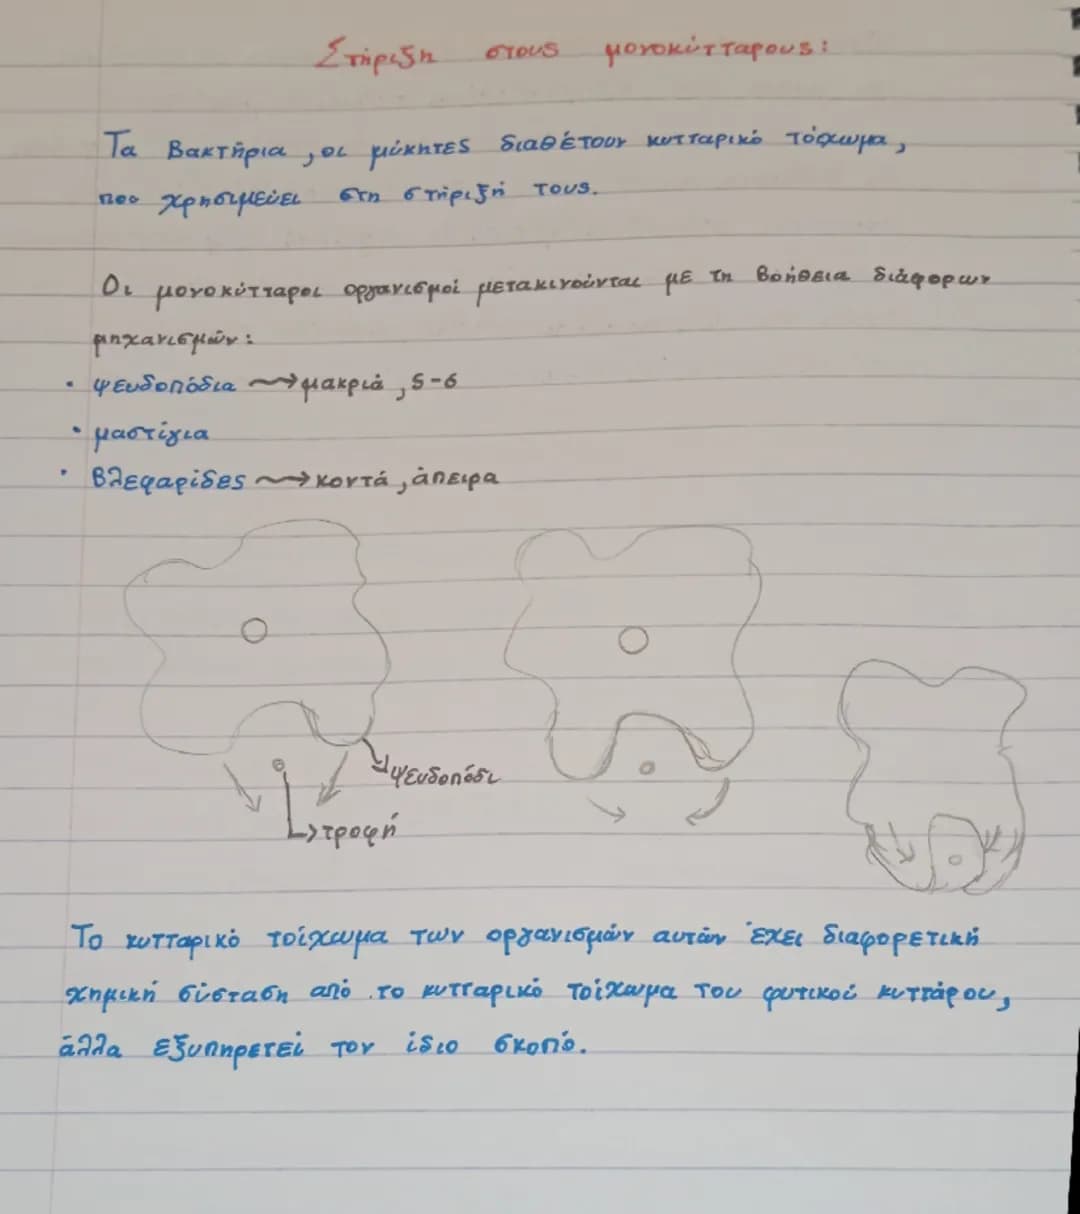 Στήριξη στους μονοκύτταρους:
Τα Βακτήρια, οι μύκητες διαθέτουν κυτταρικό τόιχωμα,
που χρησιμεύει στη στήριξή τους.
Οι μονοκύτταροι οργανισμοί μετακινούνται με τη βοήθεια διάφορων
μηχανισμών:
• ψευδοπόδια → μακριά, 5-6
• μαστίγια
• Βλεφαρίδες → κοντά, άπειρα
ψευδοπόδι
τροφή
Το κυτταρικό τοίχωμα των οργανισμών αυτών έχει διαφορετική
χημική σύσταση από το κυτταρικό τοίχωμα του φυτικού κυττάρου,
άλλα εξυπηρετεί τον ίδιο σκοπό.